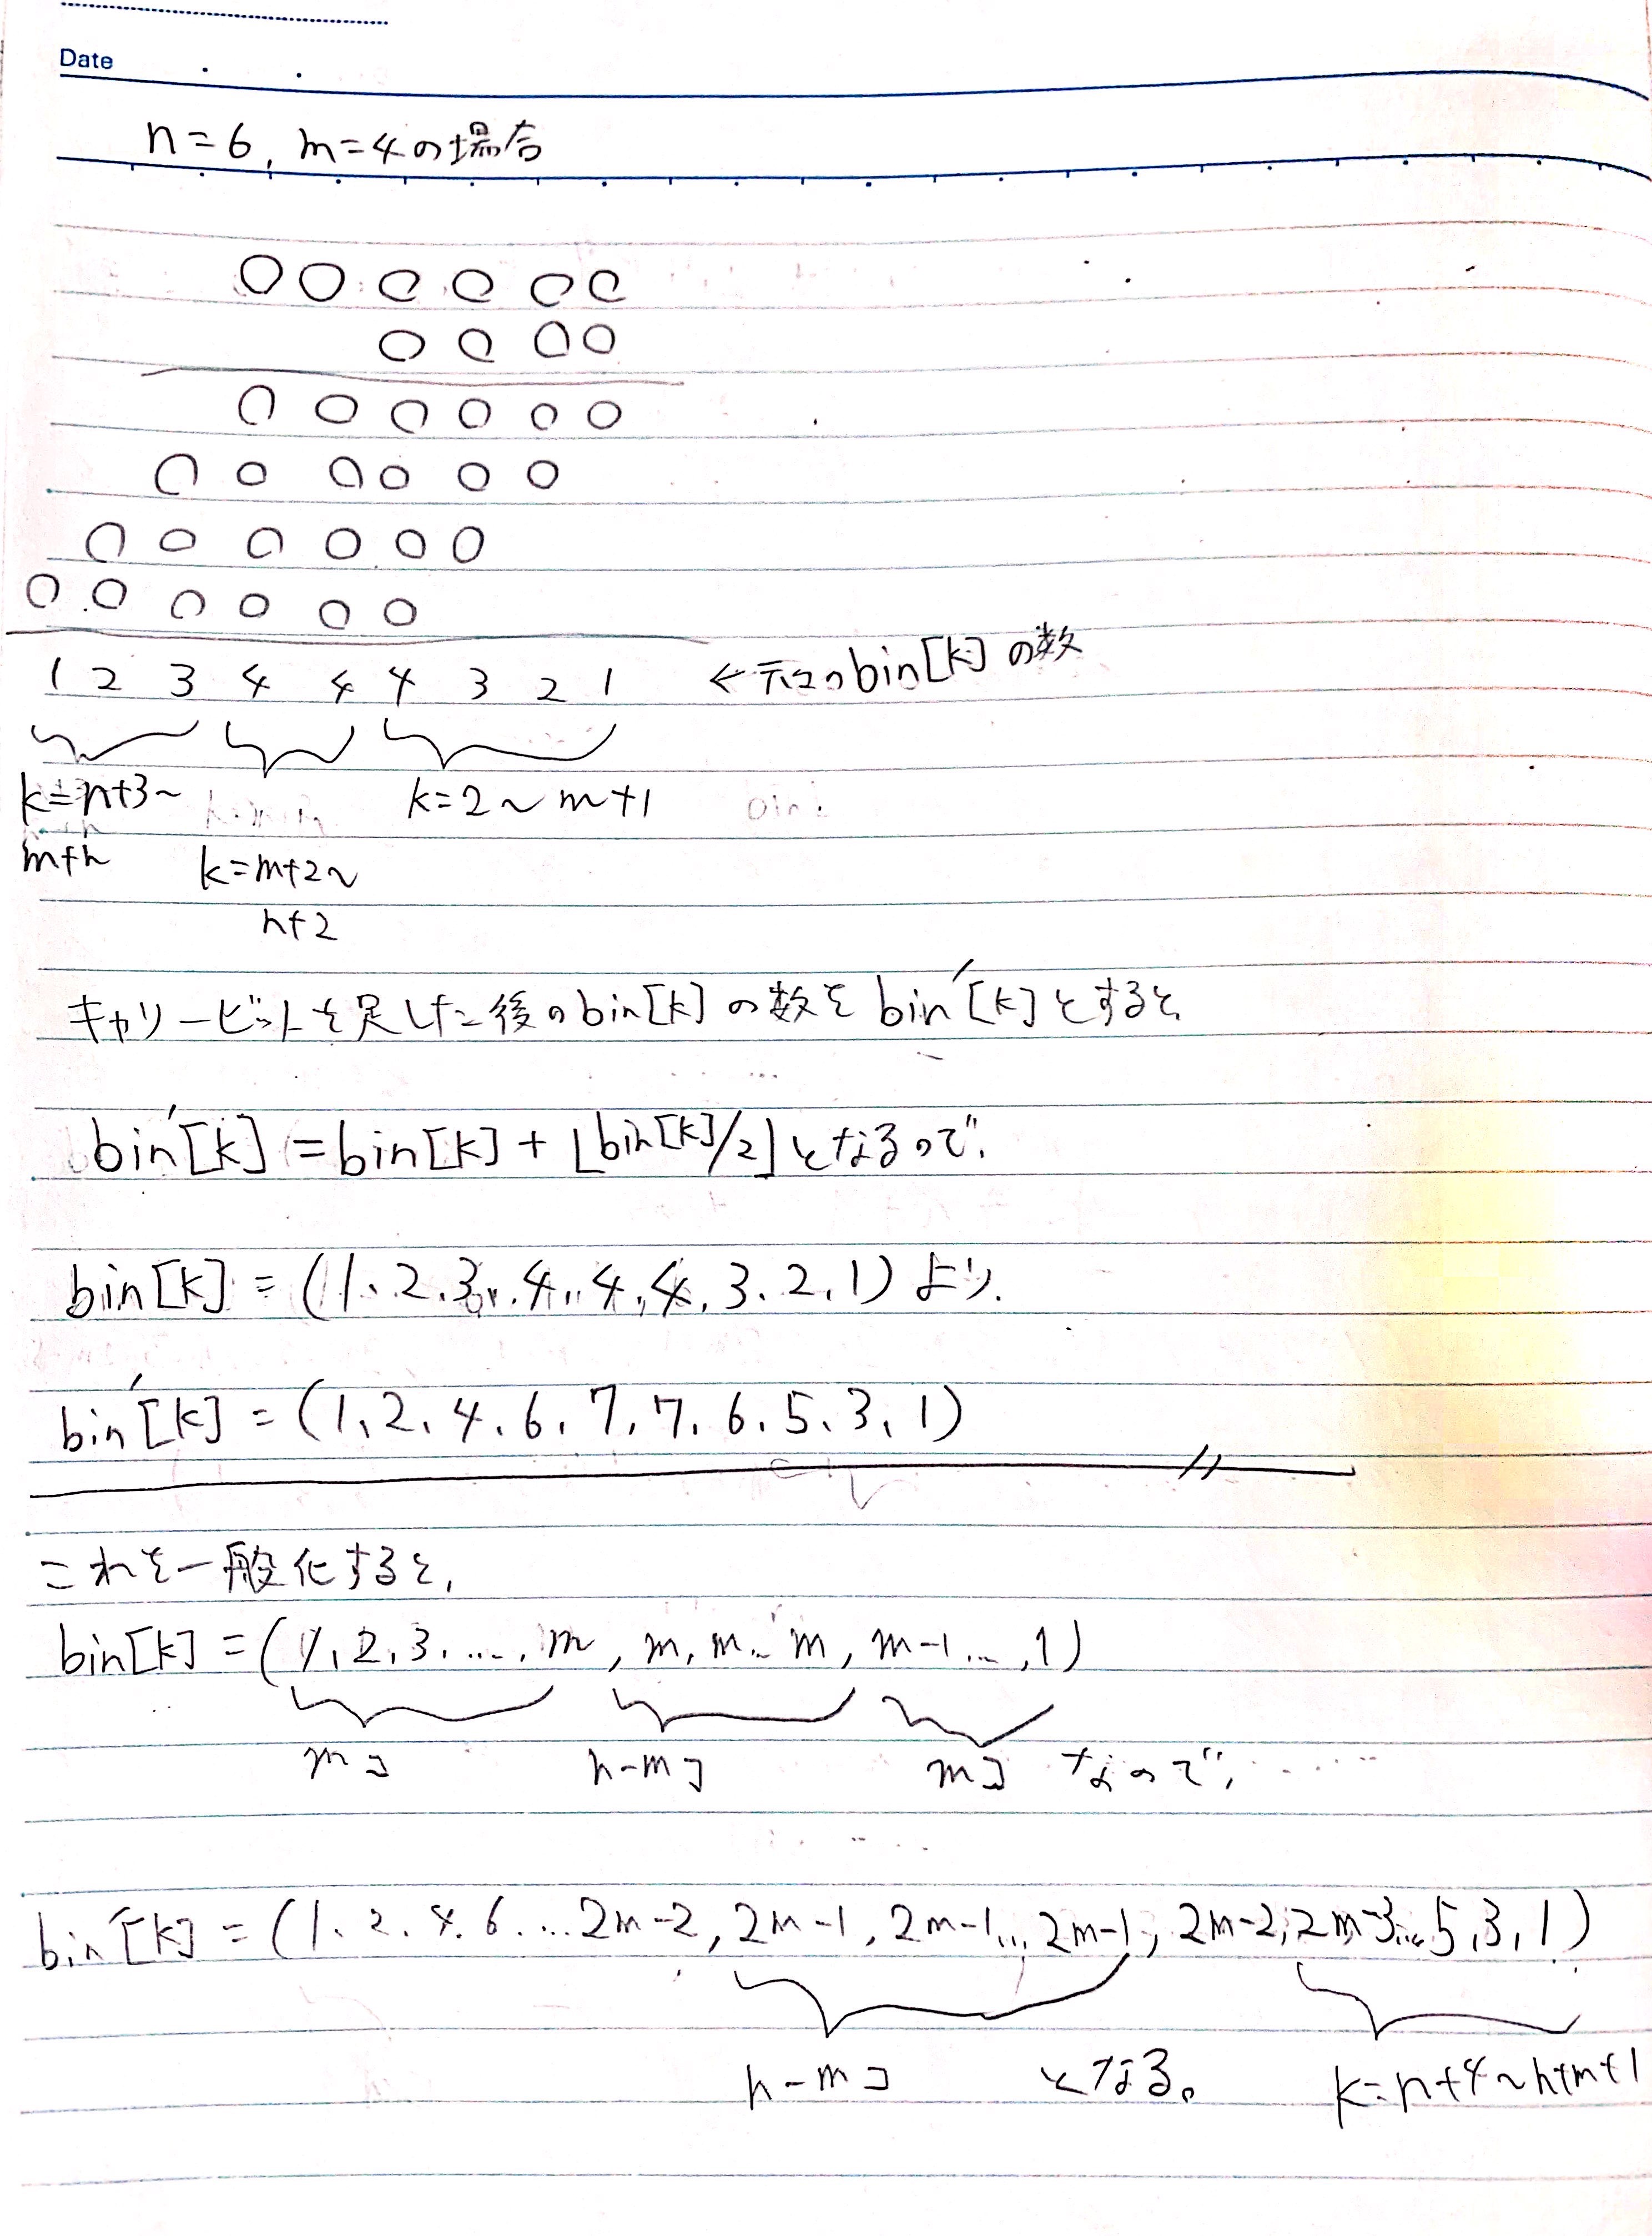 Date
n=6, m=4の場合
○○○○○○
○○○○
○○○○○○
○○○○○○
○○○○○○
○○○○○○
1 2 3 4 4 4 3 2 1 ←元々のbin[k]の数
k=n+3~ k=2~m+1
m+n k=m+2~
n+2
キャリービットを足した後のbin[k]の数をbin'[k]とすると、
bin'[k]=bin[k]+⌊bin[k]/2⌋となるので、
bin[k]=(1、2、3、4、4、4、3、2、1)より、
bin'[k]=(1、2、4、6、7、7、6、5、3、1)
これを一般化すると、
bin[k]=(1、2、3、...、m, m, m.. m, m-1...,1)
mコ n-mコ mコ なので、......
bin'[k]=(1、2、4、6...2m-2, 2m-1, 2m-1... 2m-1, 2m-2, 2m-3...5,3,1)
n-mコ となる。 k=n+4~n+m+1